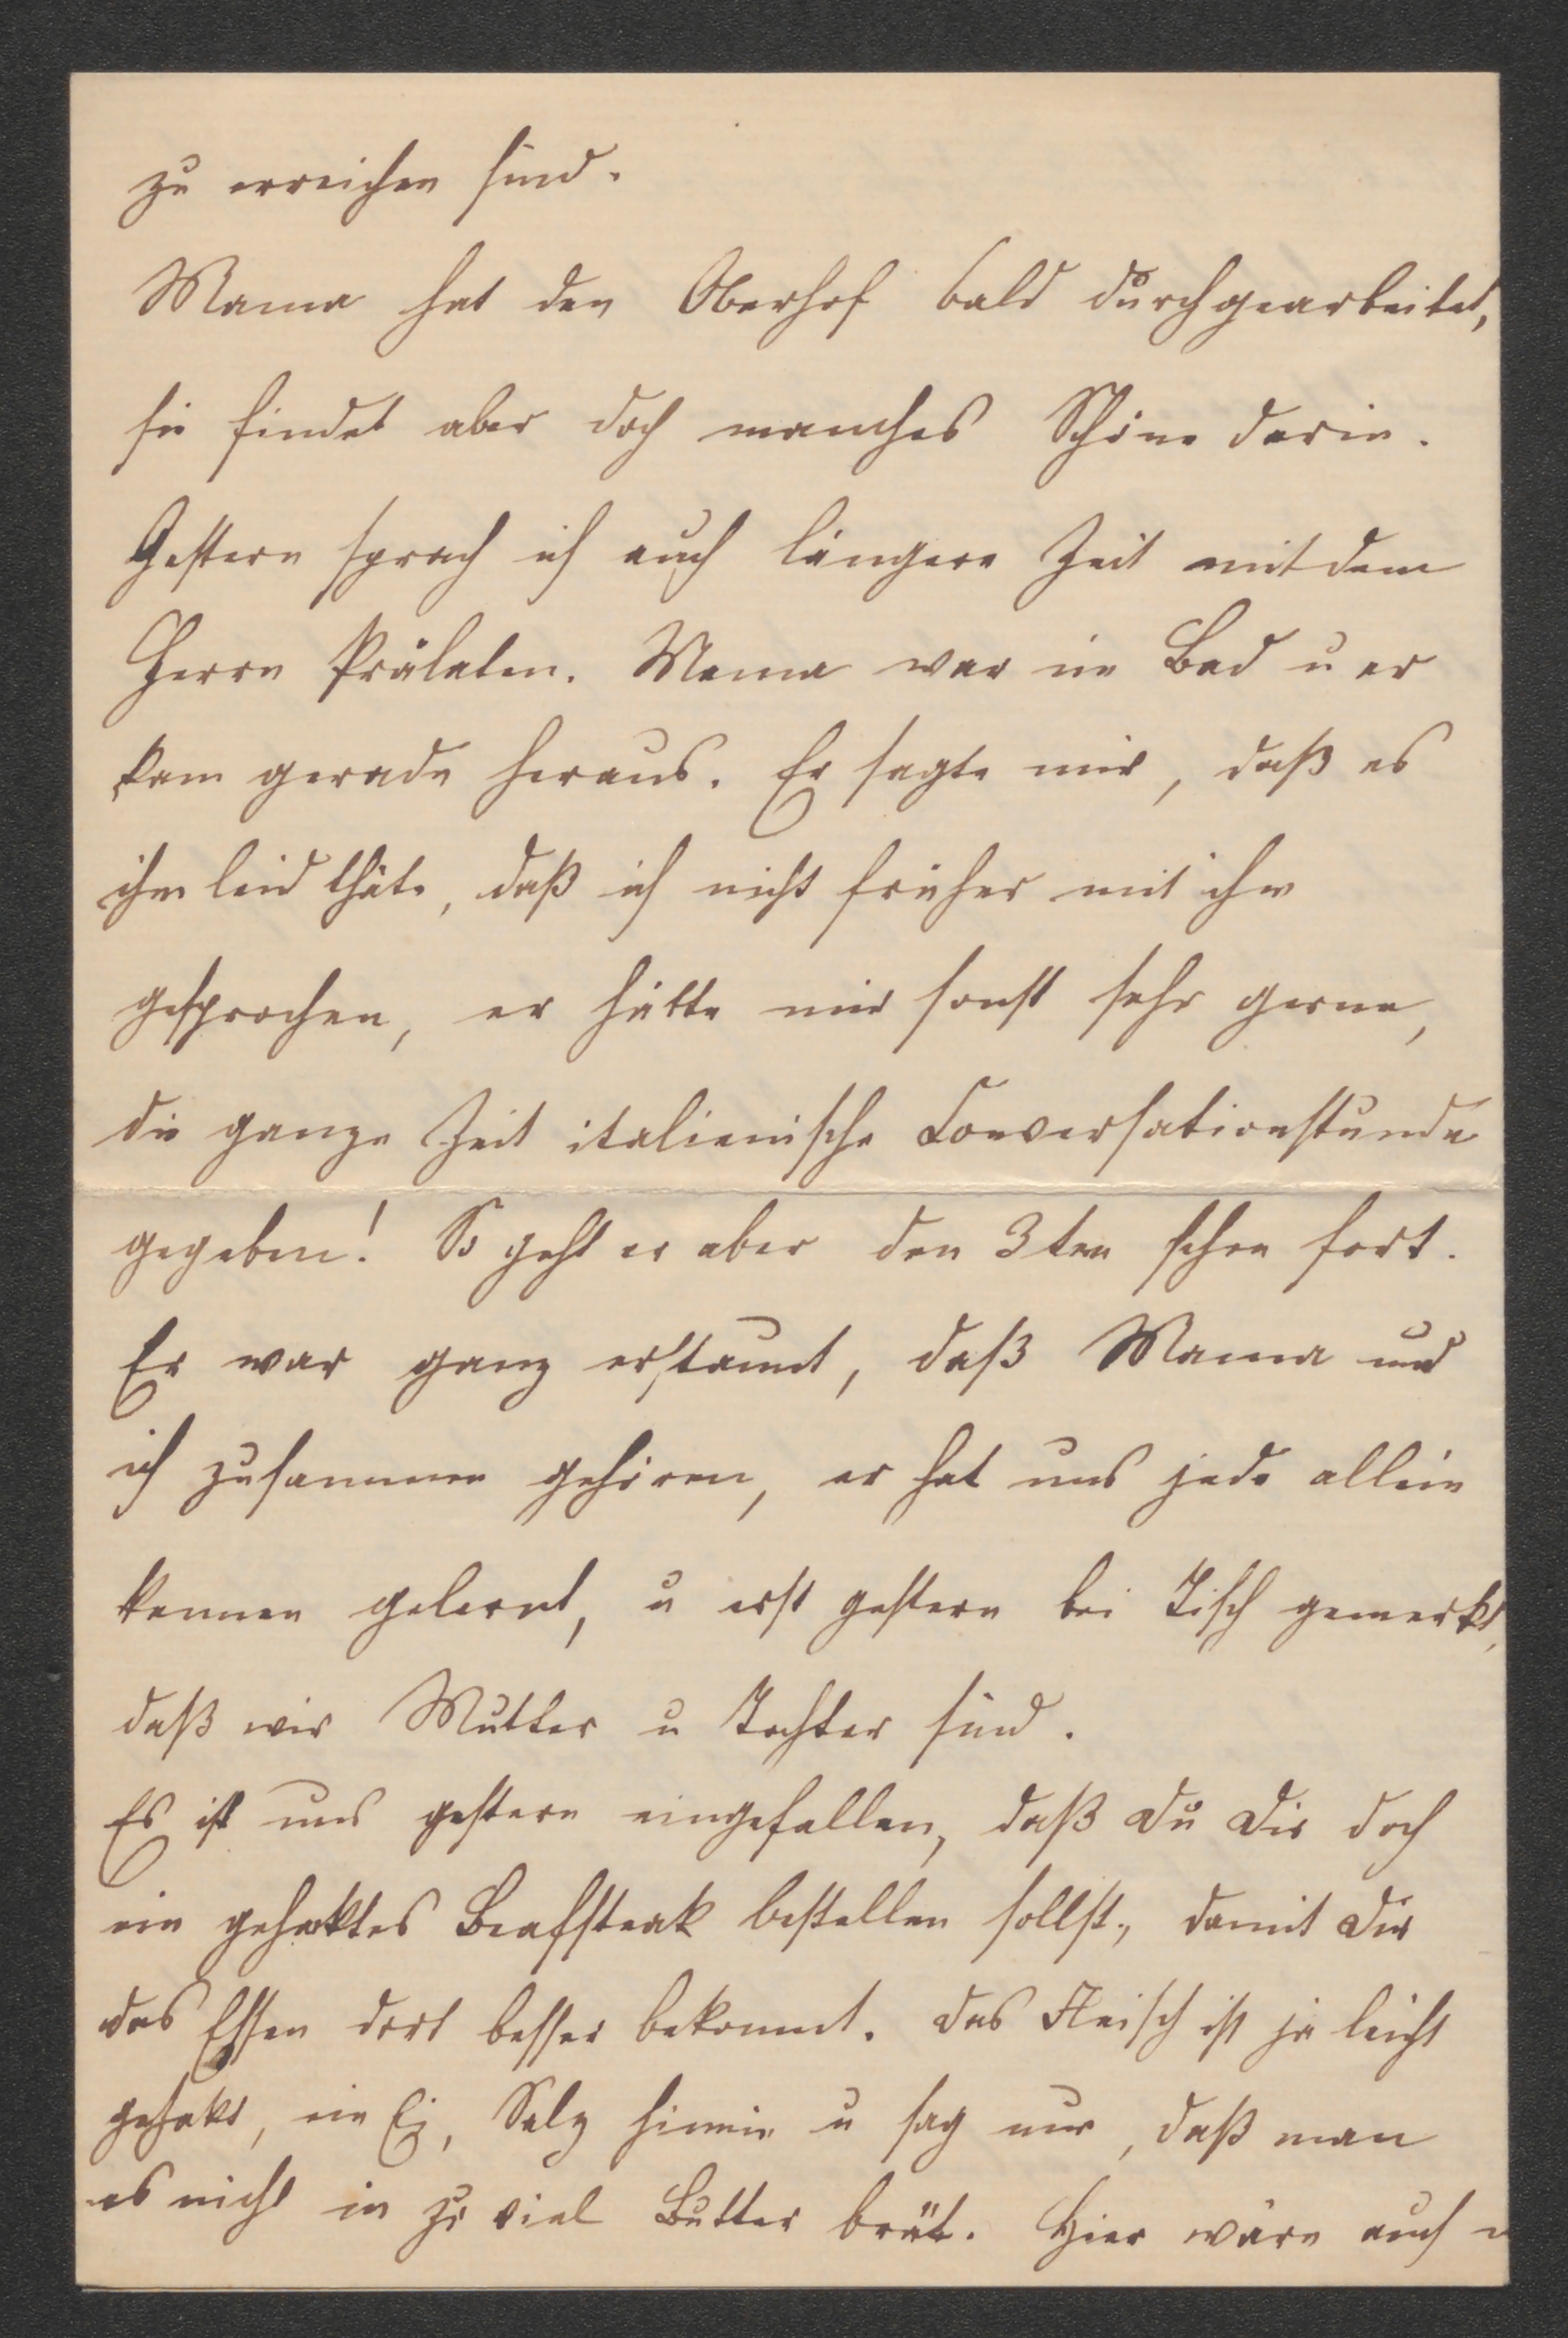 zu erreichen sind.
Mama hat den Oberhof bald durchgearbeitet,
sie findet aber doch manches Schöne darin.
Gestern sprach ich auch längere Zeit mit dem
Herrn Prälaten. Mama war im Bad u er
kam gerade heraus. Er sagte mir, daß es
ihm leid thäte, daß ich nicht früher mit ihm
gesprochen, er hätte mir sonst sehr gerne,
die ganze Zeit italienische Conversationstunde
gegeben! So geht er aber den 3ten schon fort.
Er war ganz erstaunt, daß Mama und
ich zusammen gehören, er hat uns jede allein
kennen gelernt, u erst gestern bei Tisch gemerkt,
daß wir Mutter u Tochter sind.
Es ist uns gestern eingefallen, daß Du Dir doch
ein gehaktes Beafsteak bestellen sollst, damit Dir
das Essen dort besser bekommt. Das Fleisch ist ja leicht
gehakt, ein Ei, Salz hinein u sag nur, daß man
es nicht in zu viel Butter brät. Hier wäre auch